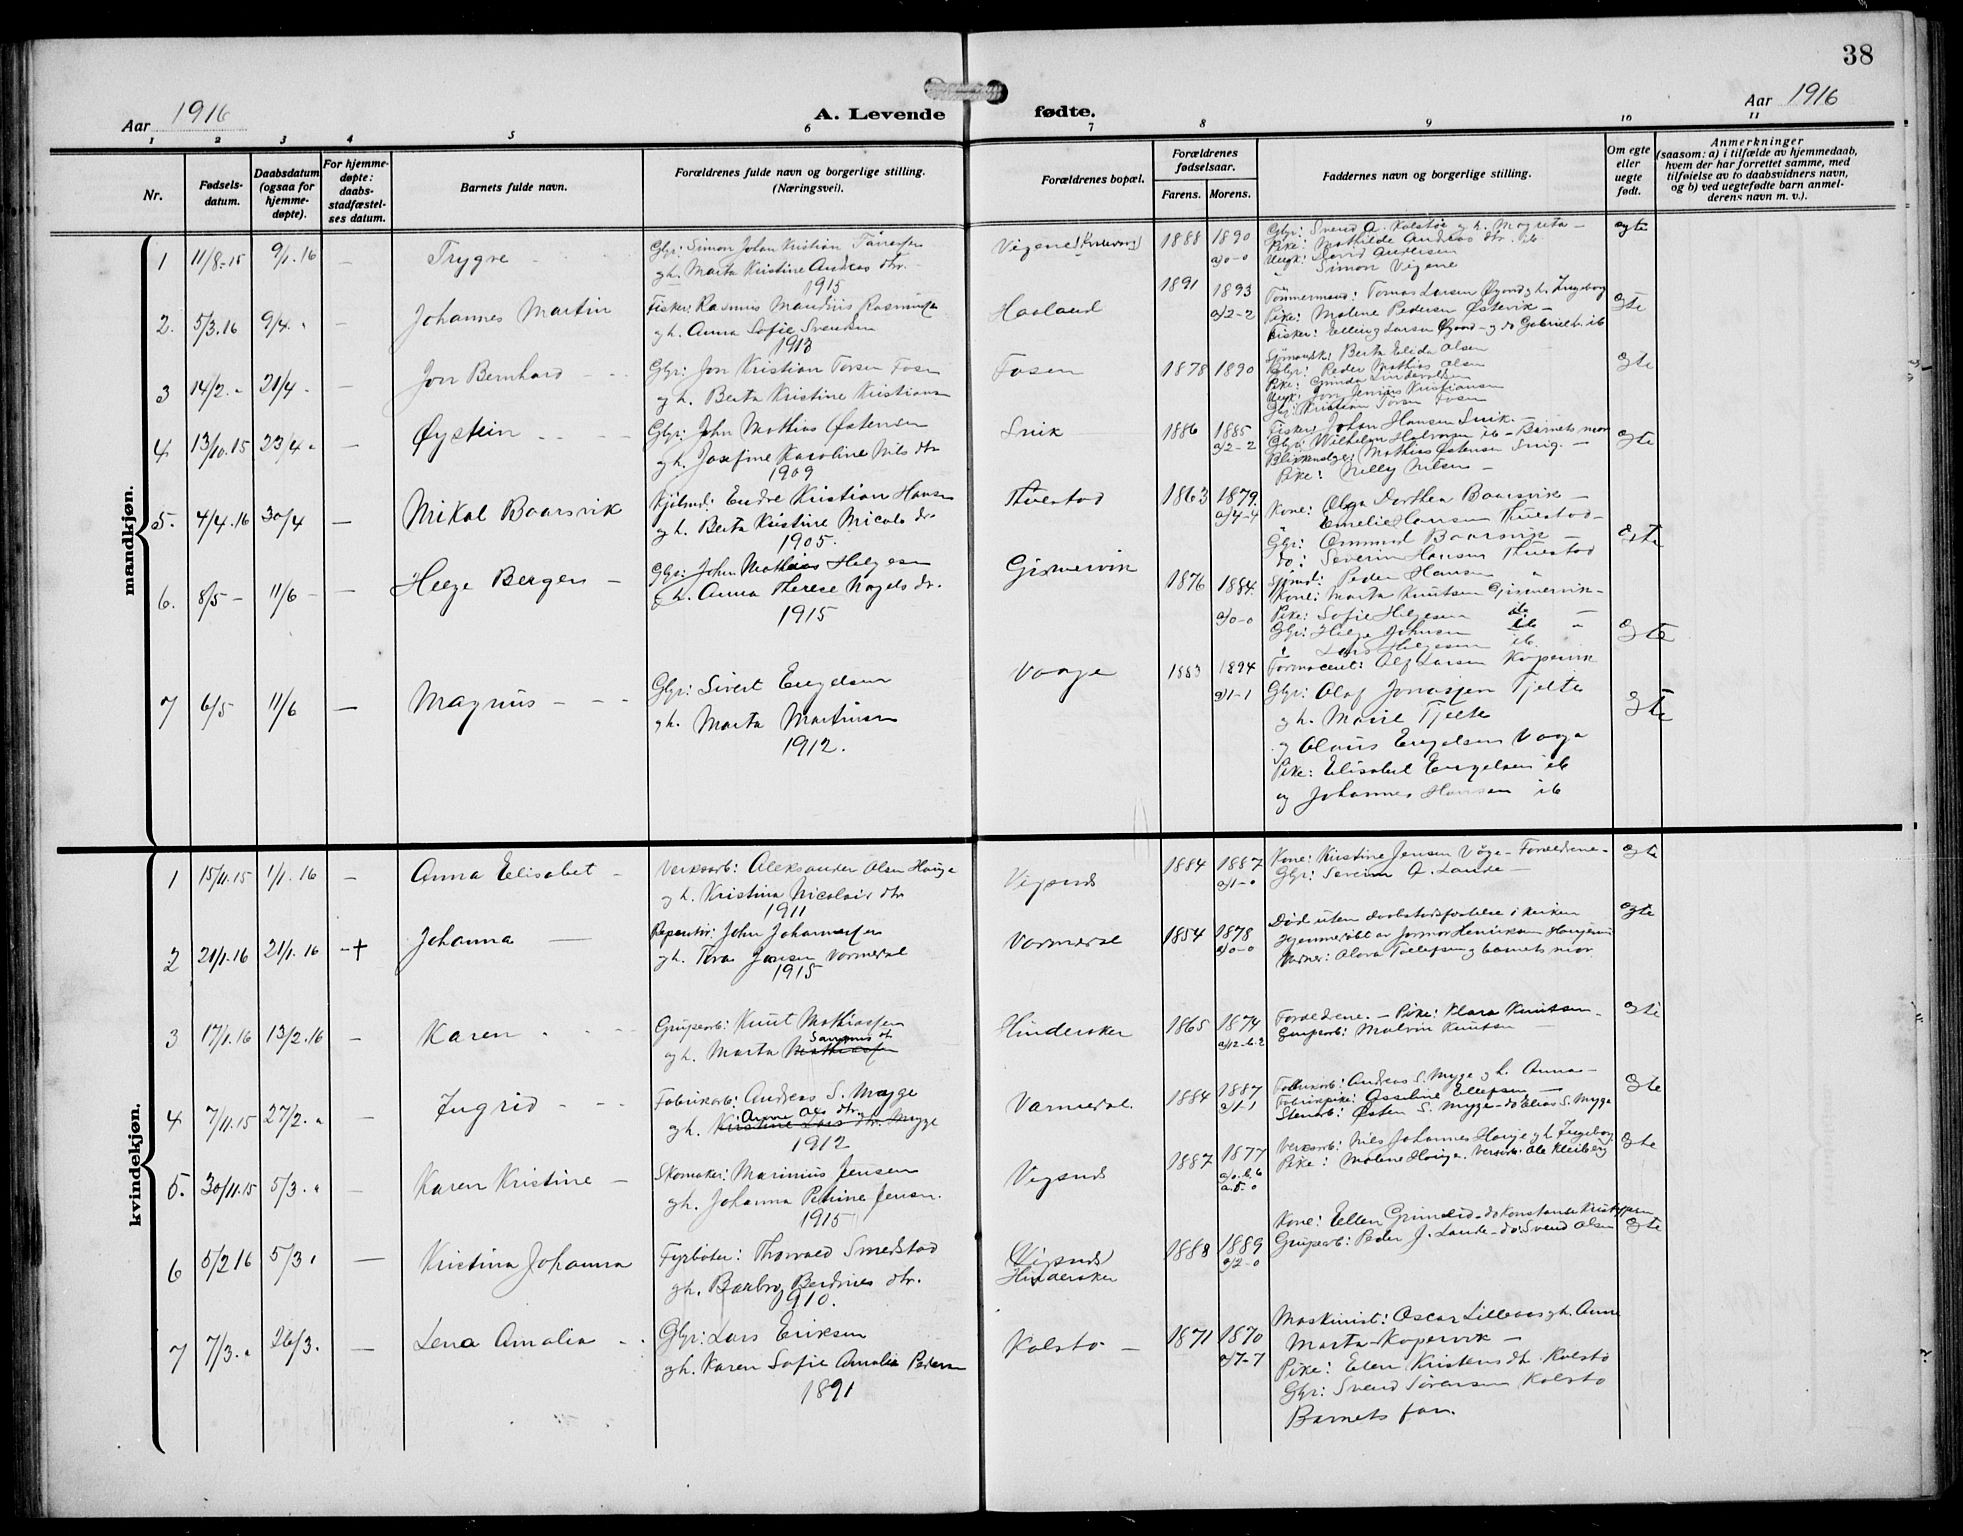 38
Aar 1916
A. Levende fødte.
Aar 1916
1 2 3 4 5 6 7 8 9 10 11
Nr.
Fødsels-
datum.
Daabsdatum
(ogsaa for
hjemme-
døpte).
For hjemme-
døpte:
daabs-
stadfæstel-
ses datum.
Barnets fulde navn.
Forældrenes fulde navn og borgerlige stilling.
(Næringsvei).
Forældrenes bopæl.
Forældrenes
fødselsaar.
Farens. Morens.
Faddernes navn og borgerlige stilling.
Om egte
eller
uegte
født.
Anmerkninger
(saasom: a) i tilfælde av hjemmedaab,
hvem der har forrettet samme, med
tilføielse av to daabsvidners navn,
og b) ved uegtefødte barn anmel-
derens navn m. v.).
mandkjøn.
1 11/8-15 9/1.16 — Trygve
Gbr: Simon Johan Kristian
gh. Marta Kristine Andreas dtr.
1915
Vigene 1888 1890
a/0-0
Gbr: Svend A. Kolstøe gh. Magreta —
Pike: Mathilde Andreas dtr. ib
Ungk: David Andersen
Simon Vigene
egte
2. 5/3.16 9/4 " — Johannes Martin
Fisker: Rasmus Mandius Rasmussen
gh. Anna Sofie Svendsen
1913
Haaland 1891 1893
a/2-2
Tømmermand: Tomas Larsen Øgond gh. Ingeborg
Pike: Malene Pedersen Østevik —
Fisker: Elling Larsen Øgond — g do Gabriel ib
egte
3 14/2. " 21/4 — Jon Bernhard
Gbr: Jon Kristian Torsen Fosen
gh. Berta Kristine Kristians
Fosen 1878 1890
Sjømandsk: Berta Elida Olsen
Gbr: Peder Mathias Olsen
Pike: Gunda
Ungk: Jon Jenius Kristiansen
Gbr: Kristian Torsen Fosen
egte
4 13/10.15 23/4 " — Øystein
Gbr: John Mathias Østensen
gh. Josefine Karoline Nils dtr
1909
Snik 1886 1885
a/2-2
Fisker: Johan Hansen Snik —
Gbr: Wilhelm Halvorsen ib — Barnets mor
Mathias Østensen Snig. —
Pike: Nelly Nilsen —
egte
5. 4/4.16 30/4 — Mikal Baarsvik
Endre Kristian Hansen
gh. Berta Kristine Nicols dr.
1905.
Thuestad 1863 1879.
a/4-4
Kone: Olga Dorthea Baarsvik —
Emelie Hansen Thuestad —
Gbr: Ommund Baarsvik —
do: Severin Hansen Thuestad
egte
6. 8/5 — 11/6 — — Helge Bergen —
Gbr: John Mathias Helgesen
gh. Anna Therese Nagels dr.
1915
Gismervik 1876 1884
a/0-0
Peder Hansen "
Kone: Marta Knutsen Gismervik —
Pike: Sofie Helgesen ib —
Gbr: Helge Johnsen ib "
" Lars Helgesen ib.
egte
7 6/5 11/6 — Magnus
Gbr: Sivert Engelsen
gh. Marta Martinsen
1912.
Vaage 1883 1894
a/1-1
Farmaceut: Alf Larsen Kopervik
Gbr: Olaf Jonassen Tjelte
gh. Marie Tjelte
g Olaus Engelsen Vaage
Pike: Elisabet Engelsen ib
og Johannes Hansen ib
egte
kvindekjøn.
1 15/11.15 1/1.16 — Anna Elisabet —
Verksarb: Aleksander Olsen Hauge
gh. Kristina Nicolais dtr
1911
Vigsnes 1884 1887
a/1-0
Kone: Kristine Jensen Våge — Forældrene —
Gbr: Severin A. Lande —
egte
2 21/1.16 21/1.16 -+ Johanna —
Reparatør: John Johannessen
gh. Tora Jansen Vormedal
1915
Vormedal 1854 1878
a/0-0
Død uten daabstadfæstelse i kirken
Hjemmedøbt av Jormor Henrikson Haugesund
Vidner: Olava Tollefsen og barnets mor.
egte
3 17/1.16 13/2.16 — Karen
Grubearb: Knut Mathiassen
gh. Marta Mathiassen
Hinderaker 1865 1874
a/12-6.2
Forældrene. — Pike: Klara Knutsen —
Grubearb: Malvin Knutsen
egte
4 7/11.15 27/2. " — Ingrid
Fabrikarb: Andreas S. Myge
Anne Ols dtr.
gh. Kristine Lars dtr. Mygge
1912
Varmedal. 1884 1887
a/1-1
Fabrikarb: Andreas S. Myge gh. Anna —
Fabrikpike: Osseline Ellefsen —
Stenarb: Østen S. Mygge — do Elias S. Mygge
egte
5. 30/11.15 5/3. " — Karen Kristine —
Skomaker: Marinius Jensen
gh. Johanna Petrine Jensen.
1915
Vigsnes 1887 1877
a/0.6.6
a.5-0
Verksarb: Nils Johannes Hauge gh. Ingeborg
Pike: Malene Hauge. Verksarb: Ole Kleiberg
egte
6 5/2 16 5/3 " — Kristina Johanna
Fyrbøter: Thorvald Smedstad
gh. Barbro Berdines dtr.
1910.
Vigsnes
Hinderaker 1888 1889
a/2-0
Kone: Ellen Grimered — do Konstanse Kristoffersen
Grubearb: Peder J. Lande — do: Svend Olsen
egte
7 7/3. " 26/3. — Lena Amalia
Gbr: Lars Eriksen
gh. Karen Sofie Amalia Pedersen
1891
Kolstø — 1871 1870
a/7-7
Maskinist: Oscar Lilleaas gh. Anne
Marta Kopervik —
Pike: Ellen Kristens dtr. Kolstø
Gbr: Svend Sørensen Kolstø
Barnets far.